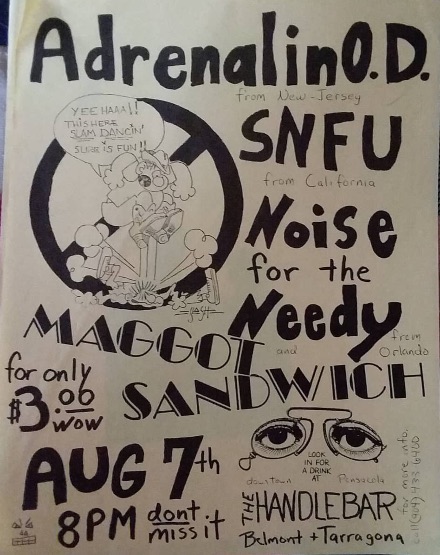 Adrenalin O.D.
from New-Jersey
YEE HAAA!!
THIS HERE
SLAM DANCIN'
SURE IS FUN!!
SNFU
from California
Noise
for the
Needy
from
Orlando
and
MAGGOT
SANDWICH
for only
$3.06
WOW
AUG 7th
8PM dont
miss it
LOOK
IN FOR
A DRINK
AT
downtown Pensacola
THE HANDLEBAR
Belmont + Tarragona
for more info.
call (904) 433